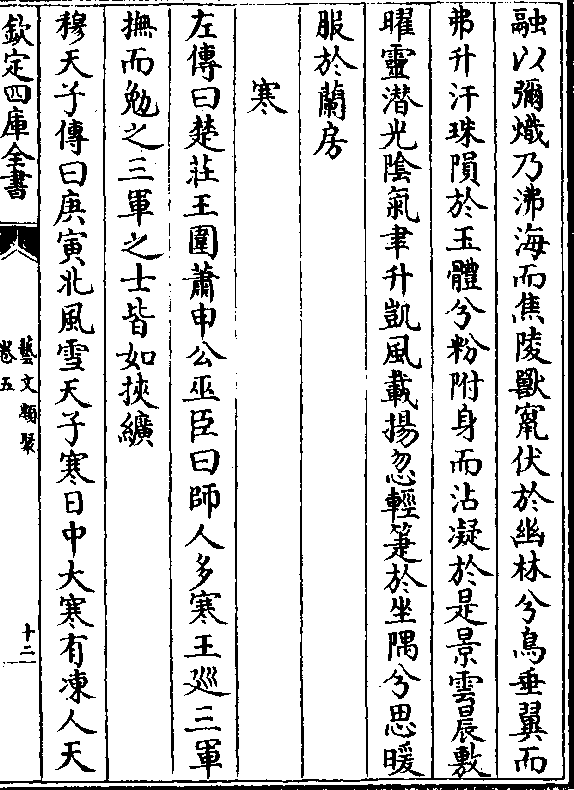 融以彌熾乃沸海而焦陵獸竄伏於幽林兮鳥垂翼而
弗升汗珠隕於玉體兮粉附身而沾凝於是景雲晨敷
曜靈潜光陰氣聿升凱風載揚忽輕箑於坐隅兮思暖
服於蘭房
寒
左傳曰楚莊王圍蕭申公巫臣曰師人多寒王廵三軍
撫而勉之三軍之士皆如挾纊
穆天子傳曰庚寅北風雪天子寒日中大寒有凍人天
欽定四庫全書
藝文類聚
卷五
十二